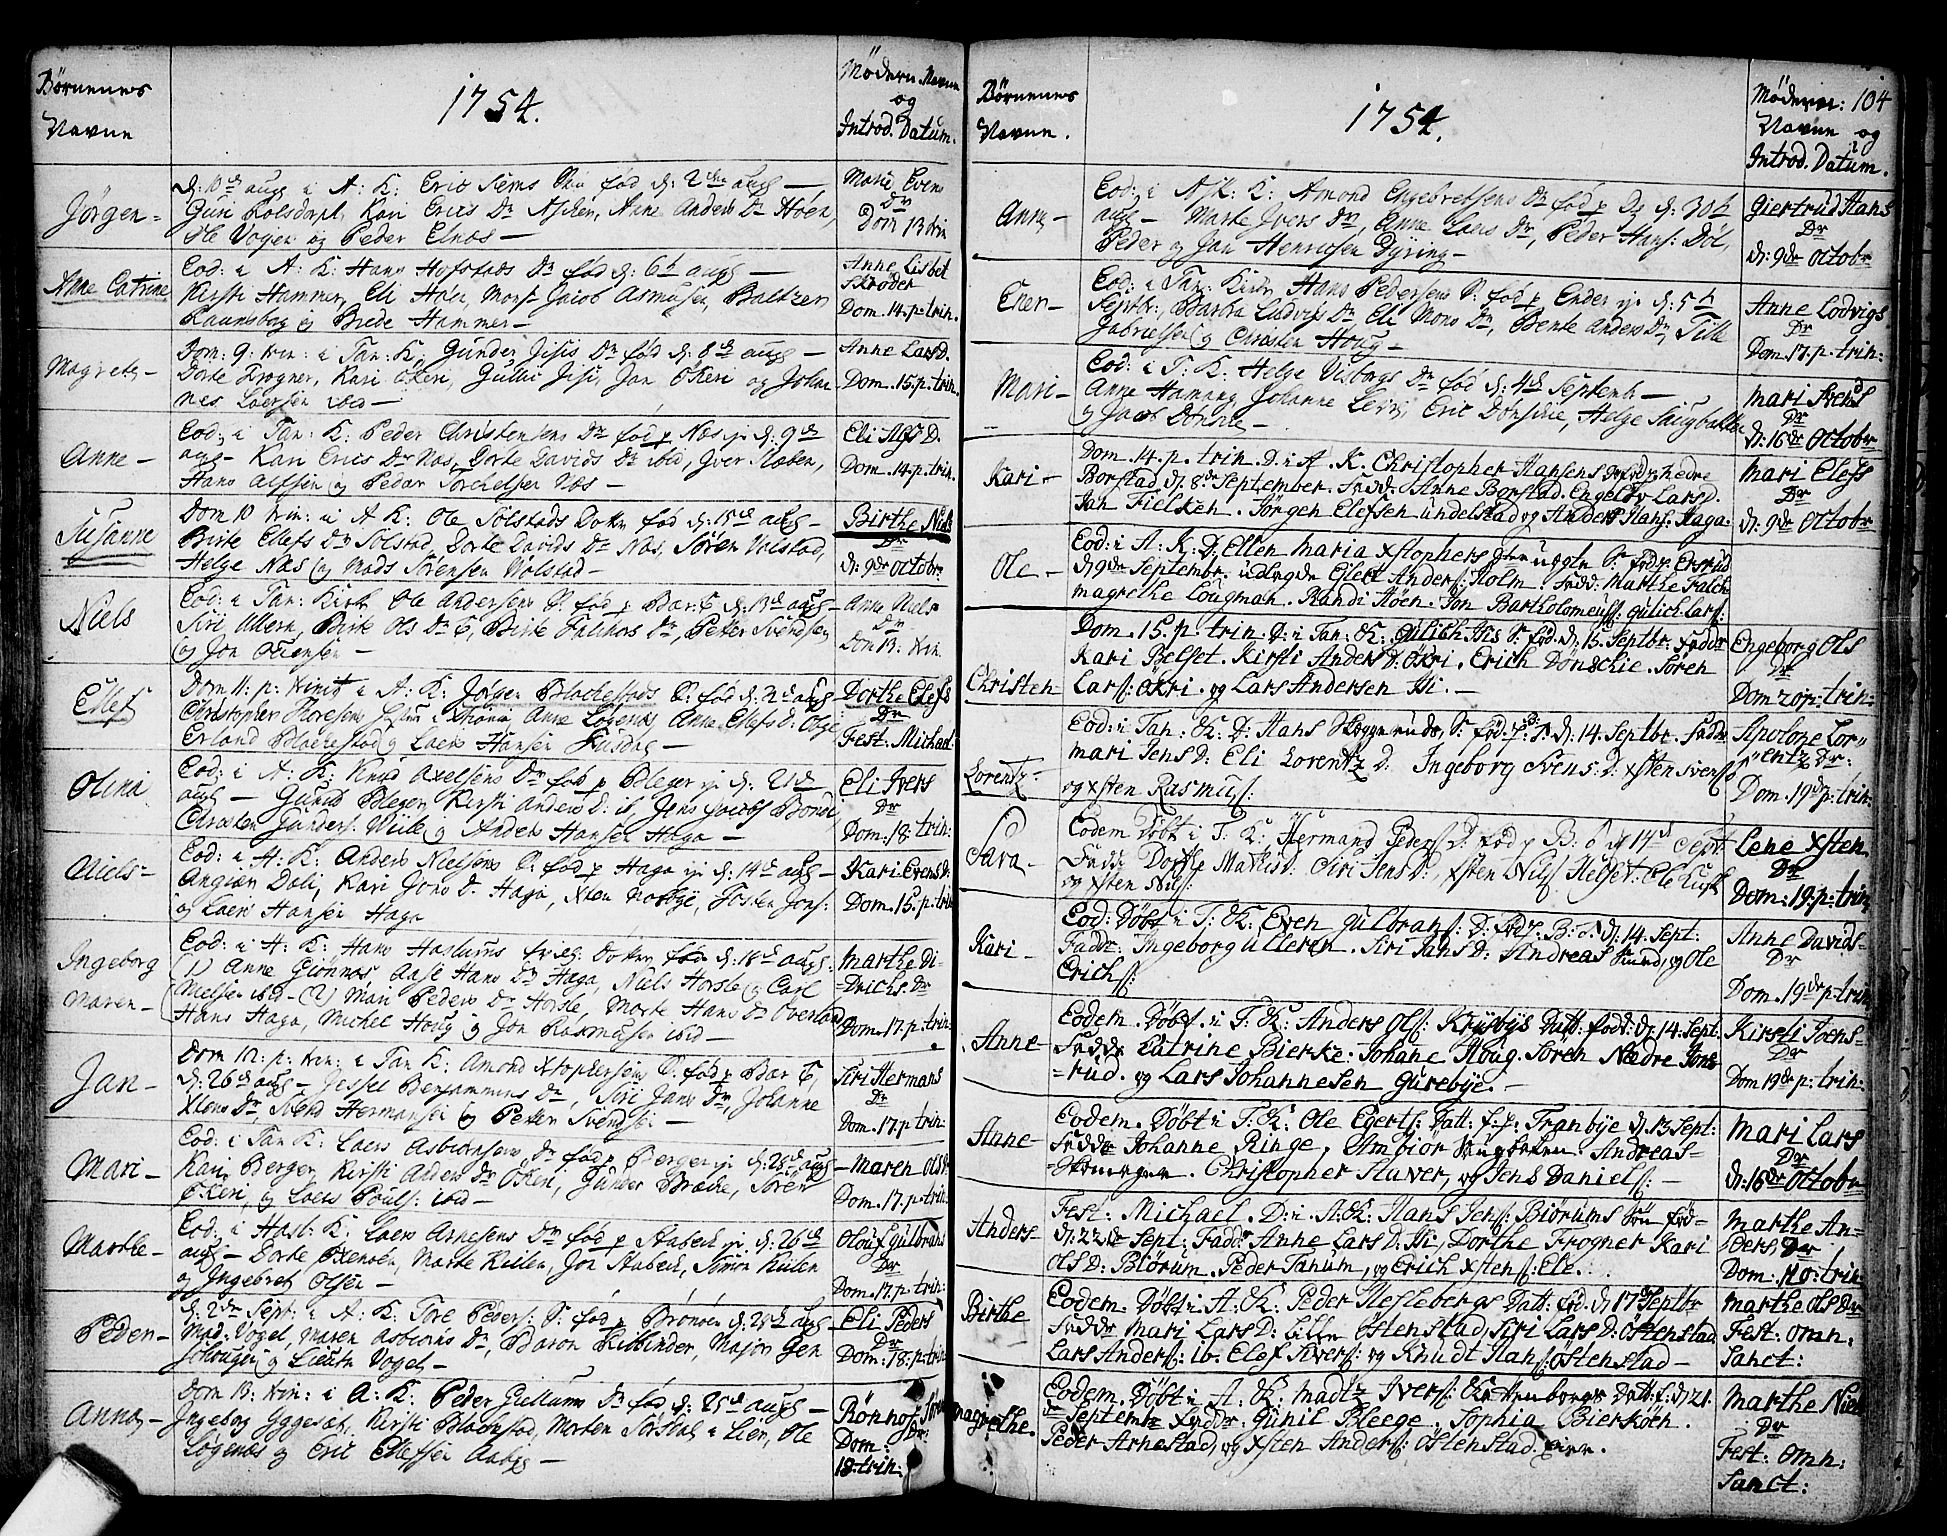 Børnenes
Navne
1754.
Mødern. Navne
og
Introd. Datum.
Jørgen-
d: 10de aug i A: K: Eric Sems Søn fød d: 2den aug —
Guri Kari Erics Dr Ascher, Anne Anders Dr Høen,
Ole Vøjen og Peder Elnæs —
Marie Evens
Dr
Dom 13 trin
Anne Catrine
Eod: i A: K: Hans Hofstads Dr fød d: 6t aug —
Kirsti Hammer, Eli Høn, Monsr Jacob Asmusen, Baltzer
Raunsborg og Brede Hammer —
Anne Lisbet
Skrøder
Dom. 14. p. trin.
Magrete-
Dom: 9: trin: i Tan: K: Gunder Jisis Dr fød d: 8de aug —
Dorte Frogner, Kari Økeri, Gullu Jisi, Jan Økeri og Johan
nes Laersen ibid —
Anne Lars D.
Dom. 15. p. trin.
Anne —
Eod: i Tan: K: Peder Christensens Dr fød p Næs d: 9de
aug — Kari Erics Dr Næs, Dorte Davids Dr ibid, Jver Staben,
Hans Alfsen og Peder Torchelsen Næs —
Eli Alfs D.
Dom. 14. p. trin.
Susanne
Dom 10 trin: i A K: Ole Solstads Dotter fød d: 15de aug —
Birte Elefs Dr Solstad, Dorte Davids Dr Næs, Søren Volstad,
Helge Næs og Mads Sørensen Volstad —
Birthe Niels
Dr
d: 9de octobr
Niels
Eod: i Tan: Kirk Ole Andersens S: fød p Bær: E d: 13de aug —
Siri Ullern, Birte Ols Dr E, Birte Dr, Petter Svendsen
og Jon Olensen —
Anne Niels
Dr
Dom 13: trin
Ellef
Dom 11: p: trinit i A: K: Jørgen Blachestads S: fød d: 21de aug
Christopher Anne Løgenes, Anne Elefs D:
Erland Blachestad og Laers Hansen —
Dorthe Elefs
Dr
Fest. Michael:
Olina
Eod: i A: K: Knud Axelsens Dr fød p Bleger d: 21de
aug — Gunild Bleger, Kirsti Anders D: ib, Jens Jacobs Bonde,
Christen Gunders: og Anders Hansen Haga —
Eli Jvers
Dr
Dom: 18 trin:
Niels-
Eod: i A: K: Anders Nielsens S: fød p Haga d: 14de aug —
Dali, Kari Jons Dr Haga, Xten Nordbye, Tosten Jons:
og Laers Hansen Haga
Kari Evens D:
Dom. 15. p. trin
Ingeborg
Maren-
Eod: i A: K: Hans Haslums Døtter fød d: 18de aug:
(1) Anne Giønnes Aase Hans Dr Haga, Niels Horsle og Carl
Nielsen ibid — (2) Mari Peders Dr Horsle, Marte Hans Dr Øverland
Hans Haga, Michel Houg og Jon Rasmusen ibid —
Marthe Di-
=drichs. Dr
Dom. 17. p. trin:
Jan —
Dom 12: p: trin: i Tan K: Amond Xtophersens S. fød p Bær E,
d: 26de aug — Jessel Benjammens Dr, Siri Jans Dr, Johanne
Xtens Dr, Svend Hermansen og Petter Svendsen —
Siri Hermans
Dr
Dom. 17. p trin:
Mari —
Eod: i Tan K: Laers Asbiørnsens Dr fød p Berger d: 20de aug
Kari Berger, Kirsti Anders Dr Økeri, Gunder Bræche, Søren
Økeri, og Laers Pouls: ibid —
Maren Ols Dr
Dom. 17. p. trin:
Marthe-
Eod: i Hasl: K: Laers Arnesens Dr fød p Stabech d: 26de
aug — Dorte Øxenøen, Marte Killen, Jon Stabech, Simon Killen
og Ingebret Olsen —
Olouf Gulbrans
Dr
Dom. 17. p trin:
Peder-
d: 2den Sept: i A: K: Tore Peders: S: fød p Brønøen d: 28de Aug
Mad: Vogel, Maren Asbiørns Dr, Baron Kilbinder, Major Gen
og Lieutn Vogel —
Eli Peders
Dr
Dom: 18: p: trin
Anne,-
Dom 13: trin: i A: K: Peder Jellums Dr fød d: 25de aug —
Ingeborg Yggesæt, Kirsti Blachstad, Morten Sørstad i Lier, Ole
Løgenes og Eric Elefsen Aabye —
Rønnog
Dr
Dom:
18. trin:
Børnenes
Navne.
1754.
Mødernes: 104
Navne og
Introd. Datum.
Anne —
Eod: i Ask: K: Amond Engebretsens Dr fød p d: 30t
aug — Marte Jvers Dr, Anne Laers Dr, Peder Hans: Døl,
Peder og Jan Henricsen Gyring —
Giertrud Hans
Dr
d: 9de Octobr
Ener-
Eod: i Tan: Kirke Hans Pedersens S: fød p Ender d: 5t
Septbr: Barbra Ludvigs Dr Eli Mons Dr, Bente Anders Dr, Tille
Gabrielsen og Christen Houg —
Anne Lodvigs
Dr
Dom. 17. p. trin:
Mari —
Eod: i T. K: Helge Visborgs Dr fød d: 4de Septemb —
Anne Hamang, Johanne Levi, Eric Dønschie, Helge Saugbakken
og Jacob Dønschie —
Mari Svens
Dr
d: 16de Octobr
Kari —
Dom. 14. p. trin. D. i A. K. Christopher Hansens Dr fød p Nedre
Borstad d. 8de September. Fadd: Anne Borstad. Engeb: Lars D.
Jan Fielken. Jørgen Elefsen Undelstad og Anders Hans. Haga.
Mari Elefs
Dr
d: 9de Octobr
Ole —
Eod: i A: K. D: Ellen Maria Xstophers D: uægte S: fød p Ersrud
d 9de Septembr. udlagde Ejlert Anders: Holm. Fadd: Marthe Falch
Magrethe Lougman. Randi Høen. Jon Bartholomeus: Gulich Lars:
Christen
Dom. 15. p. trin. D: i Tan: K: Gulich Isis S: fød. d. 15. Septbr. Fadder
Kari Belset. Kirsti Anders D: Økri. Erich Dønschie. Søren
Lars: Økri. og Lars Andersen Isi. —
Engeborg Ols
Dr
Dom 20 p. trin:
Lorentz-
Eod: i Tan: K: D: Hans Skoggeruds, S: fød d: 14. Septbr. Fadder
Mari Jens D: Eli Lorentz D: Ingeborg Svens: D: Xsten Svens:
og Xsten Rasmus:
Apolone Lor=
=entz Dr:
Dom. 19de p: trin:
Sara-
Eodem Døbt i T: K: Hermand Peders D: fød p B: d 14de Septr
Fadd: Dorthe Mathis D: Siri Jens D:, Xsten Nils: Helset: Ole
og Xsten Nils:
Lene Xsten
Dr
Dom: 19: p: trin
Kari —
Eod: Døbt i T: K: Even Gulbrans: D: fød p. B. d. 14. Sept:
Fadd: Ingeborg Ulleren. Siri Jans D: Andreas Rund, og Ole
Erichs:
Anne Davids-
Dr
Dom. 19de p: trin
Anne-
Eodem. Døbt i T. K: Anders Ols: Krysbys Datt: fød: d: 14. Sept:
Fadd: Catrine Bierke. Johane Houg. Søren Nædre Jons=
=rud. og Lars Johannesen Gurebye. —
Kirsti Joens-
Dr
Dom 19de p: trin:
Anne-
Eodem. Døbt i T. K: Ole Egerts: Datt. f. p. Tranbye d. 13 Sept:
Fadde Johanne Ringe, Ambiør Saugbakken. Andreas-
Christopher Staver, og Jens Daniels: —
Mari Lars
Dr
d: 16de Octobr
Anders-
Fest: Michael. D: i A: K: Hans Jens: Biørums Søn fød-
d. 22de Sept: Fadd: Anne Lars D: Isi, Dorthe Frogner Kari
Ols D: Biørum. Peder Tanum, og Erich Xstens: Ele.
Marthe An-
ders Dr
Dom: 20: trin
Birthe
Eodem. Døbt i A: K: Peder Neslebergs Datt: fød. d 17 Septbr
Fadde Mari Lars D: Lille Østenstad, Siri Lars D: Østenstad
Lars Anders: ib. Elef Sivers: og Knudt Hans: Østenstad —
Marthe Ols Dr
Fest: Omn:
Sanct:
Magrethe.
Eodem. Døbt i A: K: Madtz Ivers: Datt: f: d: 21.
Septembr Fadd: Gunil Bleege. Sophia Bierkøen.
Peder Arnestad, og Xsten Anders: Østenstad.
Marthe Niels
Dr
Fest: Omn:
Sanct: